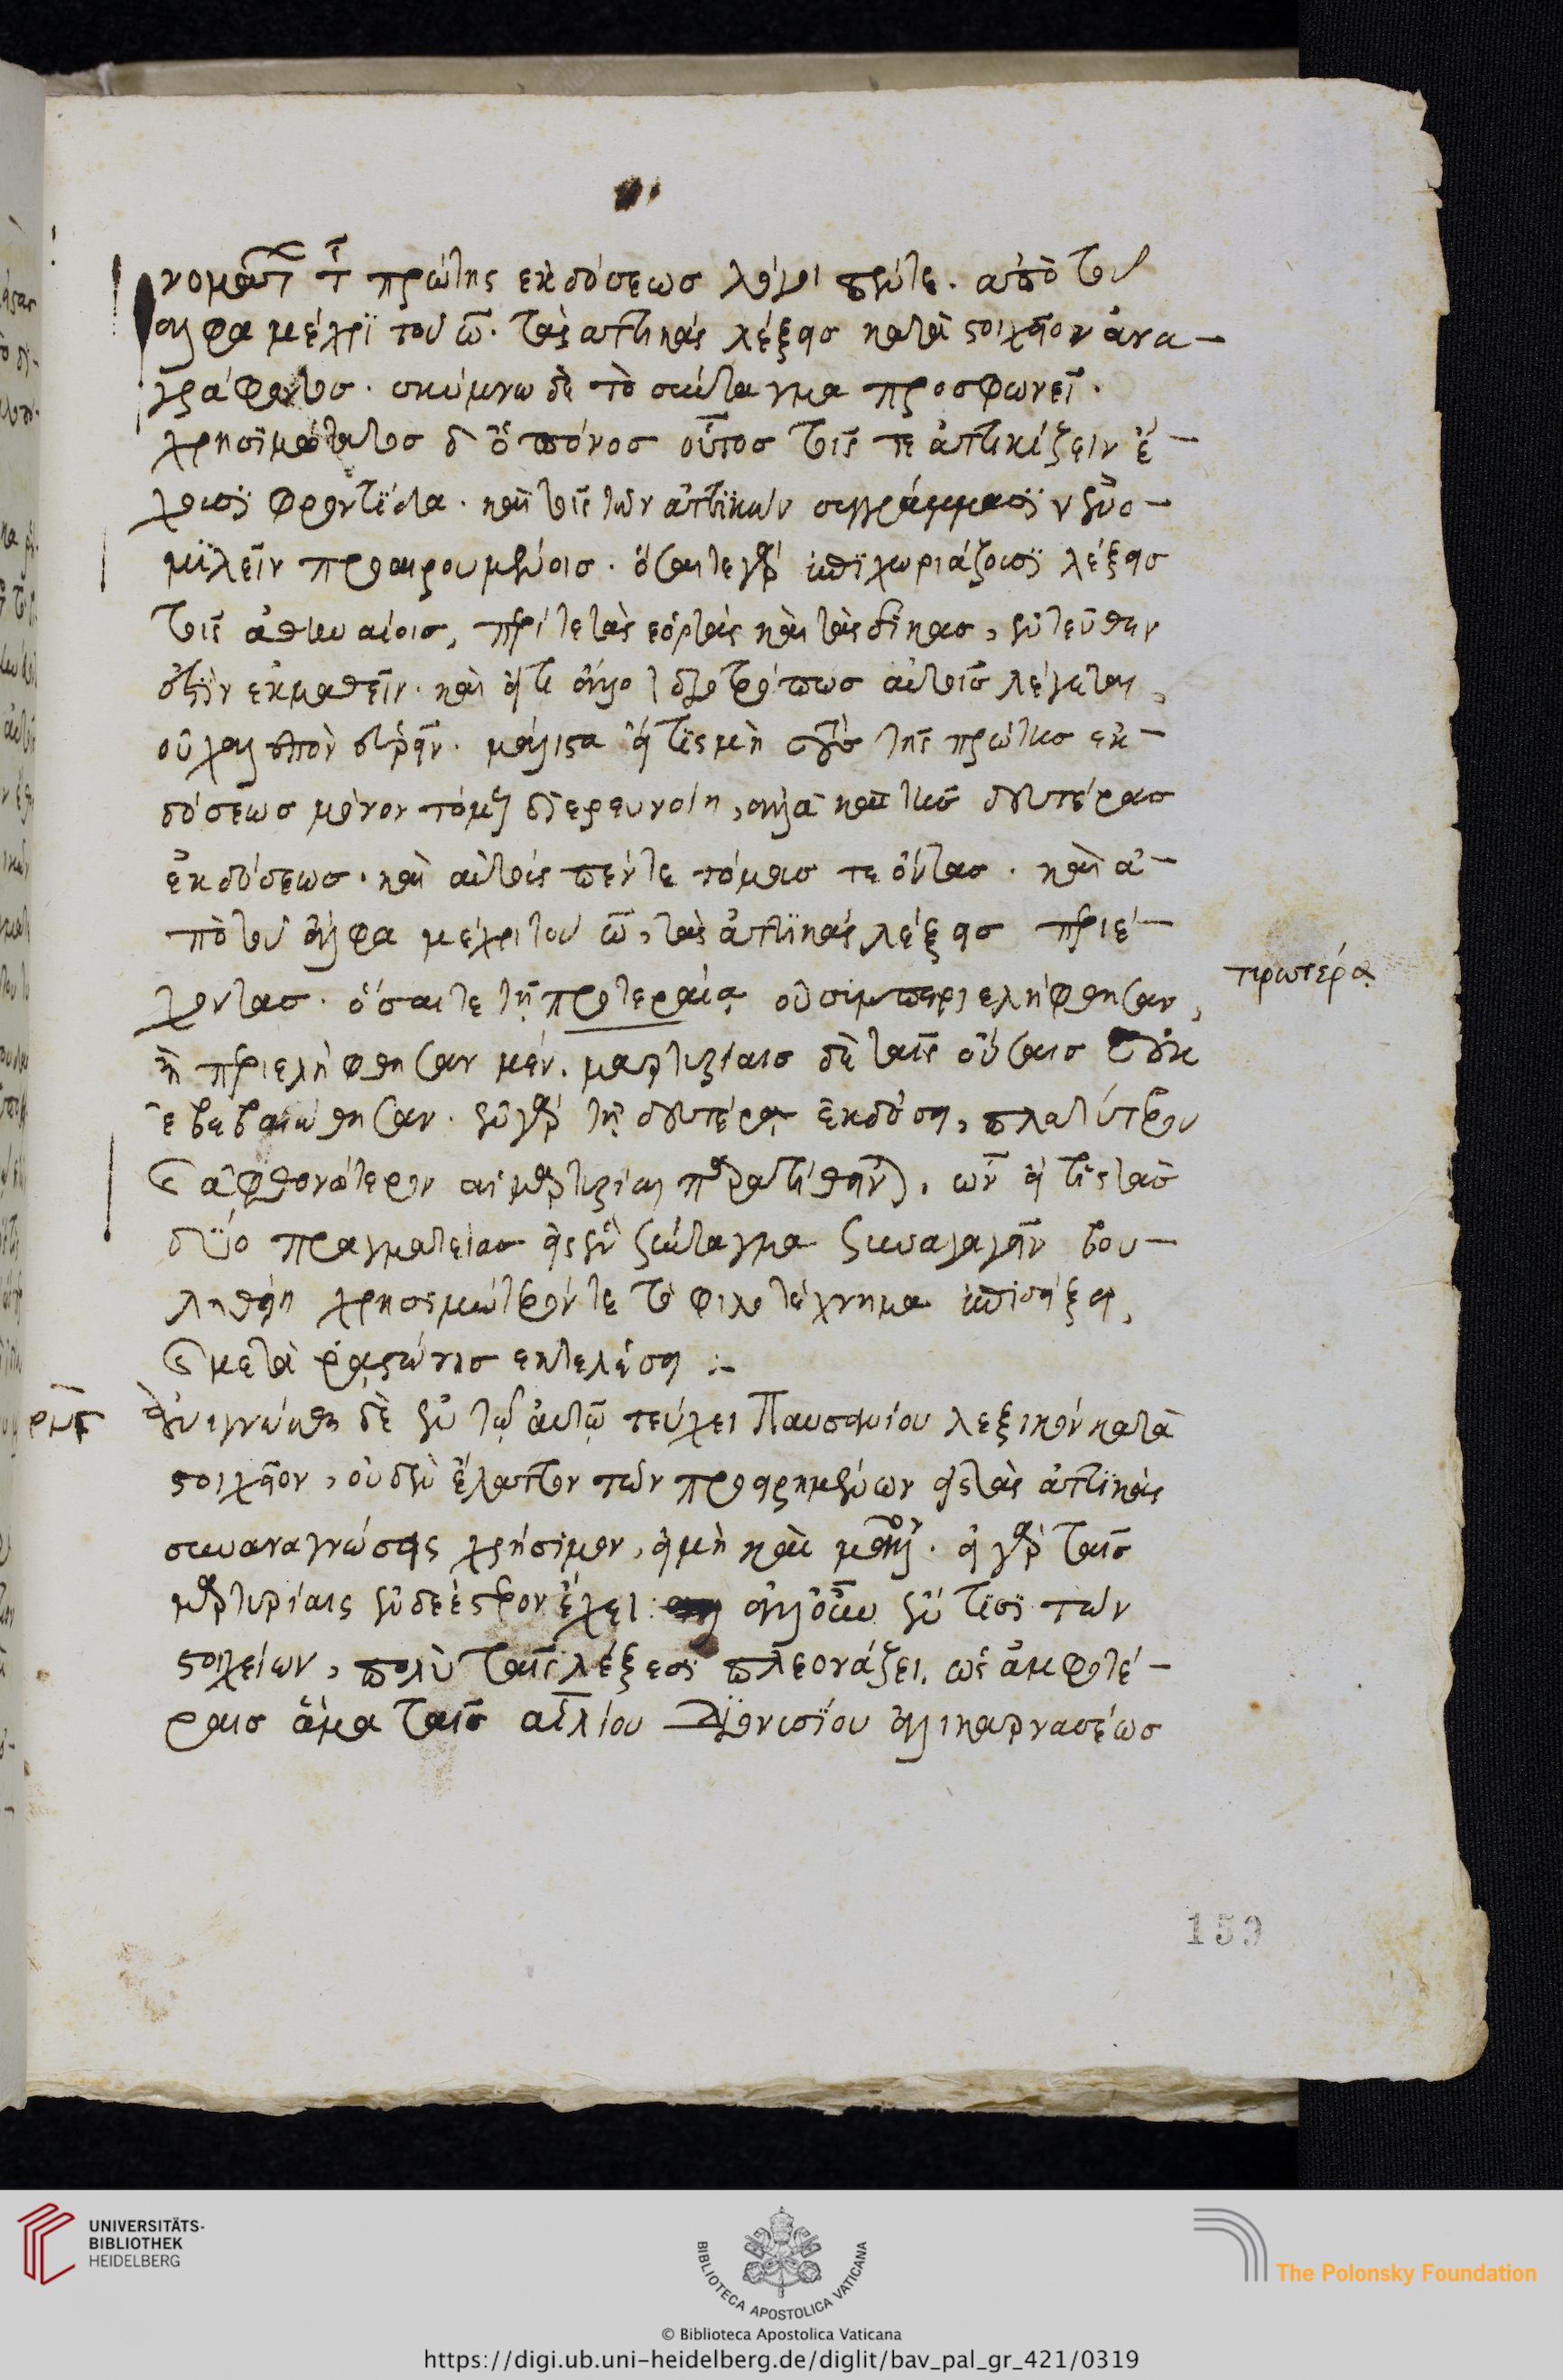 νομάτων τῆς πρώτης ἐκδόσεως λόγοι πέντε. ἀπὸ τοῦ
ἄλφα μέχρι τοῦ ω. τὰς ἀττικὰς λέξεις κατὰ στοιχεῖον ἀνα-
γράφοντες. σκύμνω δὲ τὸ σύνταγμα προσφωνεῖ.
χρησιμώτατος δ ὁ πόνος οὗτος τοῖς τε ἀττικίζειν ἔ-
χουσι φροντίδα. καὶ τοῖς τῶν ἀττικῶν συγγράμμασιν ἐνο-
μιλεῖν προαιρουμένοις. ὅσαι τε γὰρ ἐπιχωριάζουσι λέξεις
τοῖς ἀθηναίοις, περί τε τὰς ἑορτὰς καὶ τὰς δίκας, ἐντεῦθεν
ἔστιν ἐκμαθεῖν. καὶ εἴ τι ἄλλο ἰδιοτρόπως αὐτοῖς λέγεται,
οὐ χαλεπὸν εὑρεῖν. μάλιστα εἴ τις μὴ τοὺς τῆς πρώτης ἐκ-
δόσεως μόνον τόμους διερευνοίη, ἀλλὰ καὶ τῆς δευτέρας
ἐκδόσεως. καὶ αὐτοὺς πέντε τόμους τε ὄντας. καὶ ἀ-
πὸ τοῦ ἄλφα μέχρι τοῦ ω, τὰς ἀττικὰς λέξεις περιέ-
χοντας. ὅσαι τε τῇ προτεραίᾳ οὐ συμπεριελήφθησαν,
προτέρᾳ
ἢ περιελήφθησαν μέν. μαρτυρίαις δὲ ταῖς οὔσαις οὐκ
ἐβεβαιώθησαν. ἐν γὰρ τῇ δευτέρᾳ ἐκδόσει, πλατύτερον
καὶ ἀφθονώτερον αἱ μαρτυρίαι παρατίθενται. ὧν εἴ τις τὰς
δύο πραγματείας εἰς ἓν σύνταγμα συναγαγεῖν βου-
ληθείη χρησιμώτερόν τε τὸ φιλοτέχνημα ἐπιδείξει,
καὶ μετὰ ῥᾳστώνης ἐκτελέσει :-
ρνγ ἀνεγνώσθη δὲ ἐν τῷ αὐτῷ τεύχει Παυσανίου λεξικὸν κατὰ
στοιχεῖον, οὐδὲν ἔλαττον τῶν προειρημένων εἰς τὰς ἀττικὰς
συναναγνώσεις χρήσιμον, εἰ μὴ καὶ μᾶλλον. εἰ γὰρ ταῖς
μαρτυρίαις ἐνδεέστερον ἔχει ἀλλ᾽ οὖν ἔν τισι τῶν
στοιχείων, πολὺ ταῖς λέξεσι πλεονάζει. ὡς ἀμφοτέ-
ραις ἅμα ταῖς αἰλίου Διονυσίου ἁλικαρνασέως
159
UNIVERSITÄTS-
BIBLIOTHEK
HEIDELBERG
BIBLIOTECA APOSTOLICA VATICANA
The Polonsky Foundation
© Biblioteca Apostolica Vaticana
https://digi.ub.uni-heidelberg.de/diglit/bav_pal_gr_421/0319